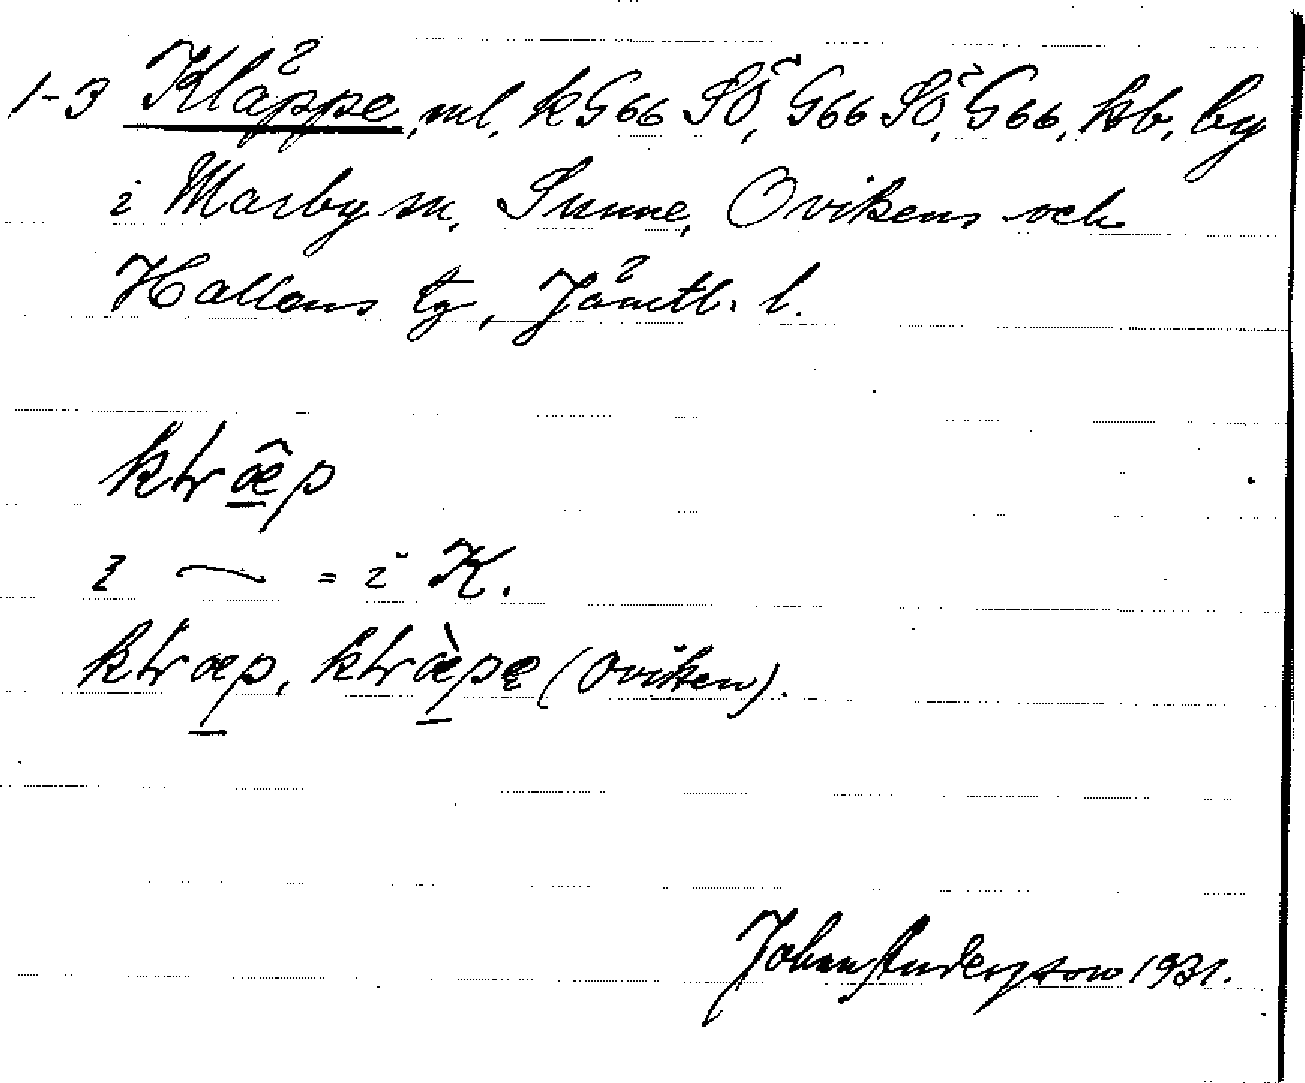 1-3 Kläppe, ml, k G66 SÖ, G66 SÖ, G66, kb, by
i Marby sn, Sunne, Ovikens och
Hallens tg, Jämtl. l.
ktræ̂p
ɩ ⁓ = i K.
ktræp, ktræ̀pe (Oviken).
John Anderzson 1931.